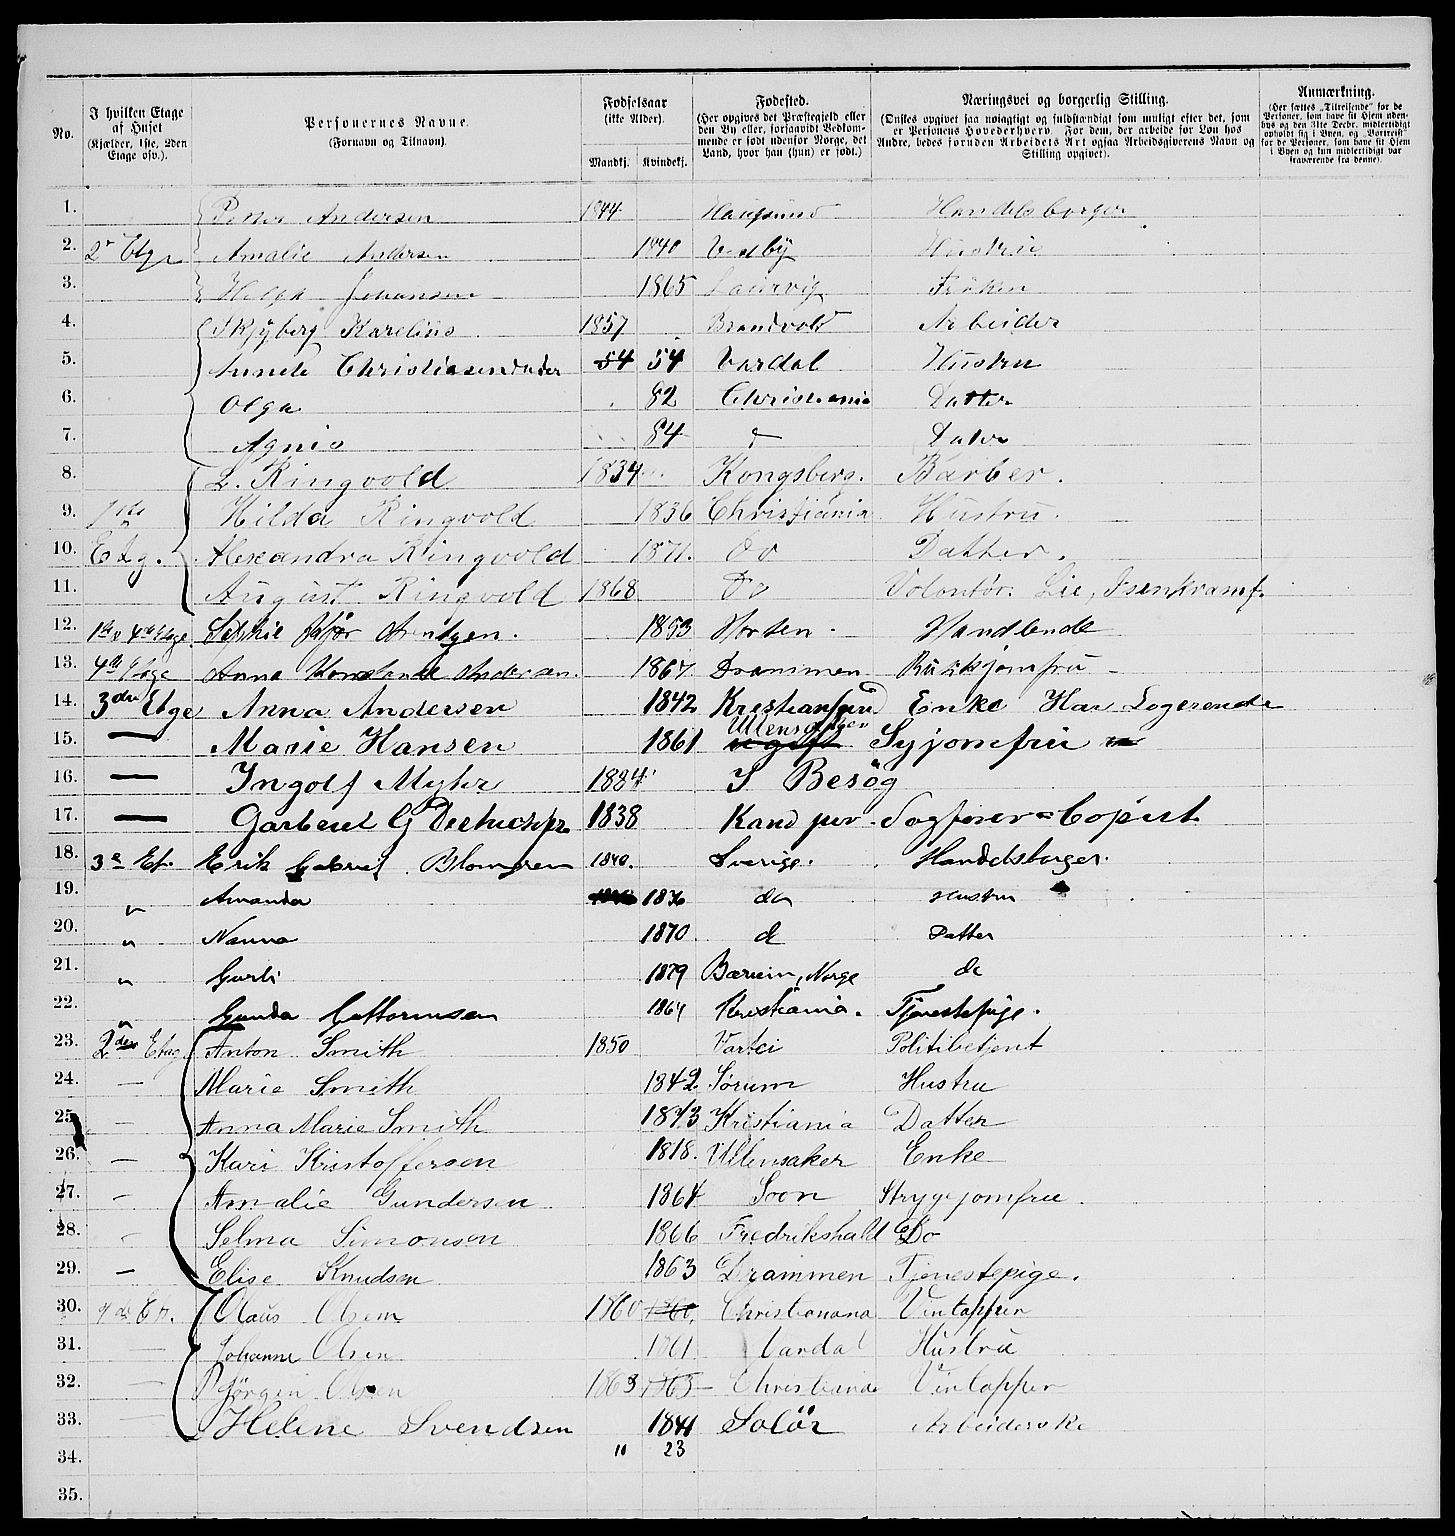 No. I hvilken Etage af Huset (Kjælder, 1ste, 2den Etage osv.). Personernes Navne. (Fornavn og Tilnavn). Fødselsaar (ikke Alder). Mandkj. Kvindekj. Fødested. (Her opgives det Præstegjeld eller den By eller, forsaavidt Vedkommende er født udenfor Norge, det Land, hvor han (hun) er født.) Næringsvei og borgerlig Stilling. (Ønskes opgivet saa nøiagtigt og fuldstændigt som muligt efter det, som er Personens Hovederhverv. For dem, der arbeide for Løn hos Andre, bedes foruden Arbeidets Art ogsaa Arbeidsgiverens Navn og Stilling opgivet). Anmærkning. (Her sættes „Tilreisende“ for de Personer, som have sit Hjem udenbys og den 31te Decbr. midlertidigt opholdt sig i Byen, og „Bortreist“ for de Personer, som have sit Hjem i Byen og kun midlertidigt var fraværende fra denne).
1. Petter Andersen 1844 Haugsund Handelsborger
2. 2n Etge Amalie Andersen 1840 Vestby Hustrue
3. Helga Johansen 1865 Laurvig Frøken
4. Skjyberg Karelius 1857 Brandvold Arbeider
5. Christiasendader 54 54 Vardal Hustru
6. Olga 82 Christiania Datter
7. Agnis 84 Dater
8. L. Ringvold 1834 Kongsberg. Barber.
9. 1ste Hilda Ringvold 1836 Christiania Hustru.
10. Etg. Alexandra Ringvold 1871. Do Datter.
11. August Ringvold 1868 Do Volontør. Lie, Isenkramf.
12. 1ste & 4de Etage Sophie Arentzen. 1853 Horten. Handlende
13. 4de Etage Anna Konstance Andersen. 1867 Drammen Butikjomfru
14. 3die Etge Anna Andersen 1842 Kristiansund Enke Har Logerende
15. — Marie Hansen 1861 ugift Ullensaker Syjomfru
16. — Ingolf Myhr 1884 I Besøg
17. — G 1838 Kand jur. Sagfører=Copist
18. 3e Et. Erik Gabriel Blomgren 1840. Sverige. Handelsborger.
19. " Amanda 1836 do Hustru
20. " Nanna 1870 do Datter
21. " Gurli 1879 Bærum, Norge do
22. " Gunda Guttormsen 1864 Kristiania. Tjenestepige.
23. 2den Etag. Anton Smith 1850 Vartei Politibetjent
24. — Marie Smith 1842 Sørum Hustru
25. — Anna Marie Smith 1873 Kristiania Datter
26. — Kari Kristoffersen 1818. Ullensaker Enke
27. — Amalie Gundersen 1864 Soon Strygejomfru.
28. — Selma Simonsen 1866 Fredrikshald Do
29. — Elise Knudsen 1863 Drammen Tjenestepige.
30. Et. Olaus Olsen 1860 1860, Christianana Vintapper
31. — Johanne Olsen 1861 Vardal Hustru
32. — Jörgen Olsen 1863 1863 Christiania Vintapper
33. — Helene Svendsen 1841 Solör Arbeiderske
34. 11 23
35.